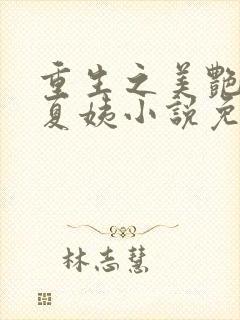 重生之美艳
夏姨小说免
林志慧